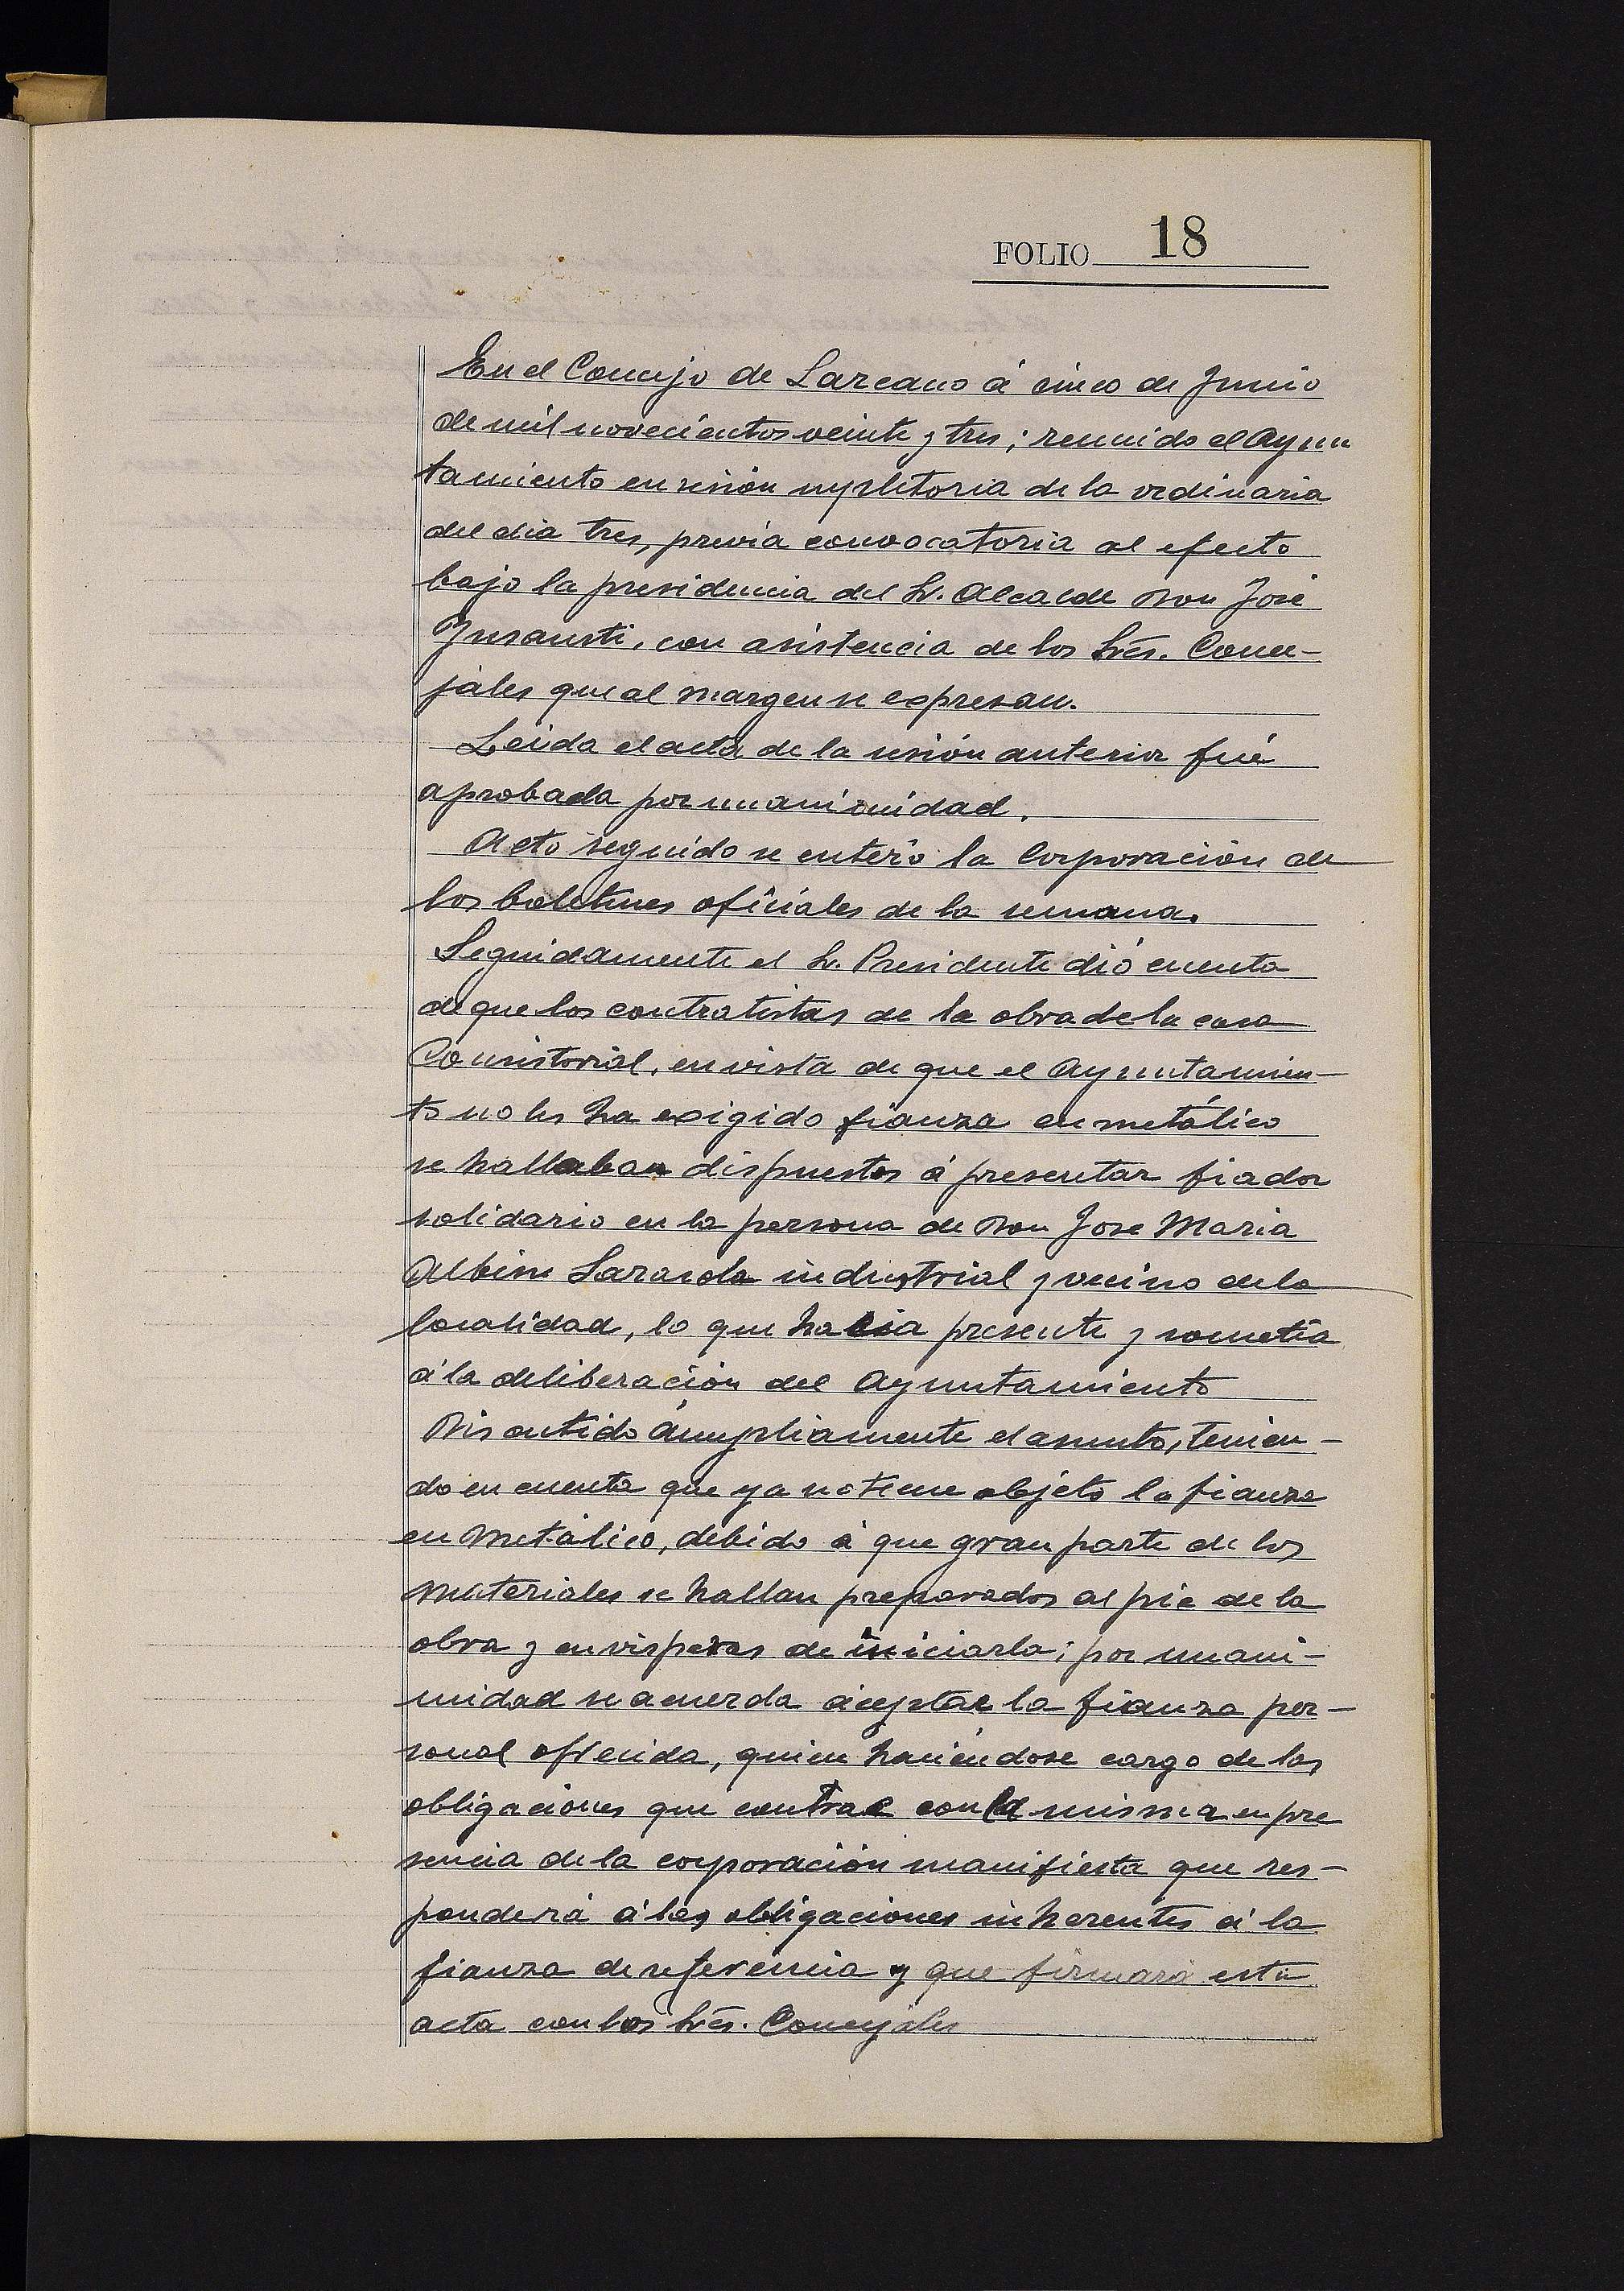 FOLIO 18
En el Concejo de Lazcano á cinco de Junio
de mil novecientos veinte y tres; reunido el Ayun
tamiento en sesión supletoria de la ordinaria
del dia tres, previa convocatoria al efecto
bajo la presidencia del Sr. Alcalde Don José
Insausti, con asistencia de los Srés. Conce-
jáles que al margen se expresan.
Leida el acta de la sesión anterior fué
aprobada por unanimidad.
Acto seguido se enteró la Corporación de
los boletines oficiales de la semana.
Seguidamente el Sr. Presidente dió cuenta
de que los contratistas de la obra de la casa
Consistorial, en vista de que el Ayuntamien-
to no les ha exigido fianza en metálico
se hallaban dispuestos á presentar fiador
solidario en la persona de Don Jose Maria
Albisu industrial y vecino de la
localidad, lo que hacia presente y sometia
á la deliberación del Ayuntamiento
Discutido ámpliamente el asunto, tenien-
do en cuenta que ya no tiene objeto la fianza
en metálico, debido á que gran parte de los
materiales se hallan preparados al pié de la
obra y en visperas de iniciarla; por unani-
midad se acuerda aceptar la fianza per-
sonal ofrecida, quien haciéndose cargo de las
obligaciones que contrae con la misma en pre
sencia de la corporación manifiesta que res-
ponderá á las obligaciones inherentes á la
fianza de referencia y que firmará esta
acta con los Srés. Concejáles